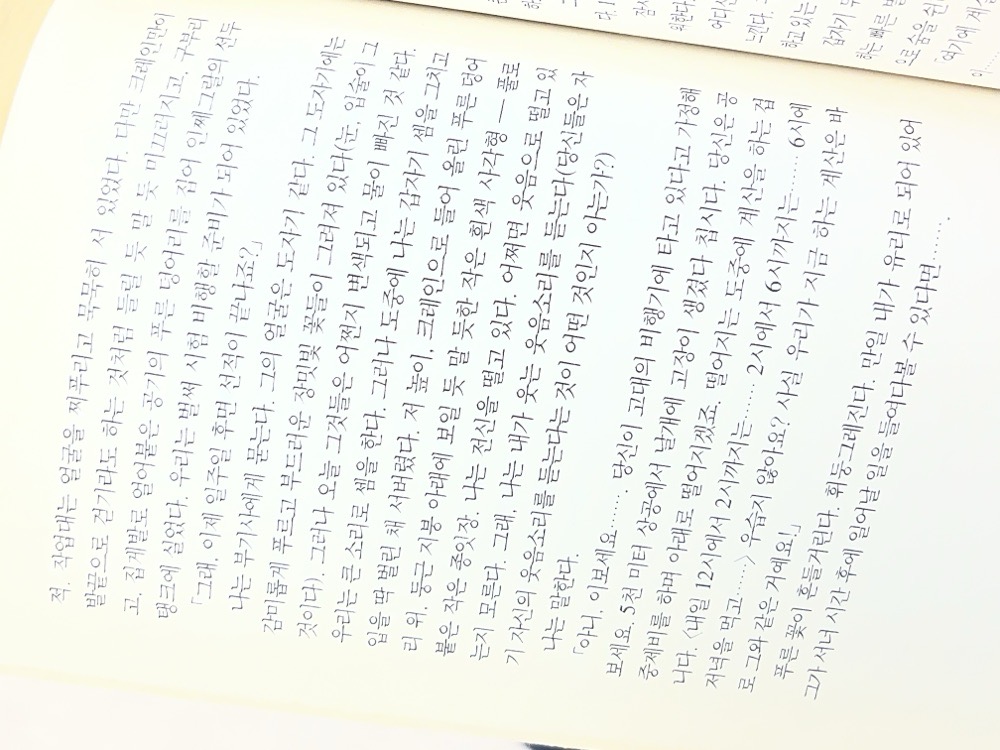 적. 작업대는 얼굴을 찌푸리고 묵묵히 서 있었다. 다만 크레인만이
발끝으로 걷기라도 하는 것처럼 들릴 듯 말 듯 미끄러지고, 구부리
고, 집게발로 얼어붙은 공기의 푸른 덩어리를 집어 인쩨그랄의 선두
탱크에 실었다. 우리는 벌써 시험 비행할 준비가 되어 있었다.
「그래, 이제 일주일 후면 선적이 끝나죠?」
나는 부기사에게 묻는다. 그의 얼굴은 도자기 같다. 그 도자기에는
감미롭게 푸르고 부드러운 장밋빛 꽃들이 그려져 있다(눈, 입술이 그
것이다). 그러나 오늘 그것들은 어쩐지 변색되고 물이 빠진 것 같다.
우리는 큰 소리로 셈을 한다. 그러나 도중에 나는 갑자기 셈을 그치고
입을 딱 벌린 채 서버렸다. 저 높이, 크레인으로 들어 올린 푸른 덩어
리 위, 둥근 지붕 아래에 보일 듯 말 듯한 작은 흰색 사각형 ─ 풀로
붙은 작은 종잇장. 나는 전신을 떨고 있다. 어쩌면 웃음으로 떨고 있
는지 모른다. 그래, 나는 내가 웃는 웃음소리를 듣는다(당신들은 자
기 자신의 웃음소리를 듣는다는 것이 어떤 것인지 아는가?)
나는 말한다.
「아니, 이보세요……. 당신이 고대의 비행기에 타고 있다고 가정해
보세요. 5천 미터 상공에서 날개에 고장이 생겼다 칩시다. 당신은 공
중제비를 하며 아래로 떨어지겠죠. 떨어지는 도중에 계산을 하는 겁
니다. 〈내일 12시에서 2시까지는…… 2시에서 6시까지는…… 6시에
저녁을 먹고……〉 우습지 않아요? 사실 우리가 지금 하는 계산은 바
로 그와 같은 거예요!」
푸른 꽃이 흔들거린다. 휘둥그레진다. 만일 내가 유리로 되어 있어
그가 서너 시간 후에 일어날 일을 들여다볼 수 있다면…….
위한다.
느낀다.
하고 있는
갑자기
하는 빠른
으로 숨을
「여기에
이……